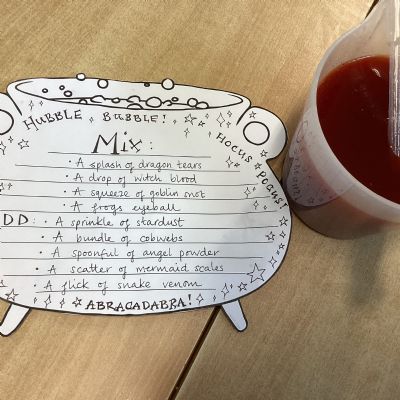 HUBBLE BUBBLE!
HOCUS POCUS!
Mix:
· A splash of dragon tears
· A drop of witch blood
· A squeeze of goblin snot
· A frogs eyeball
DD: · A sprinkle of stardust
· A bundle of cobwebs
· A spoonful of angel powder
· A scatter of mermaid scales
· A flick of snake venom
ABRACADABRA!